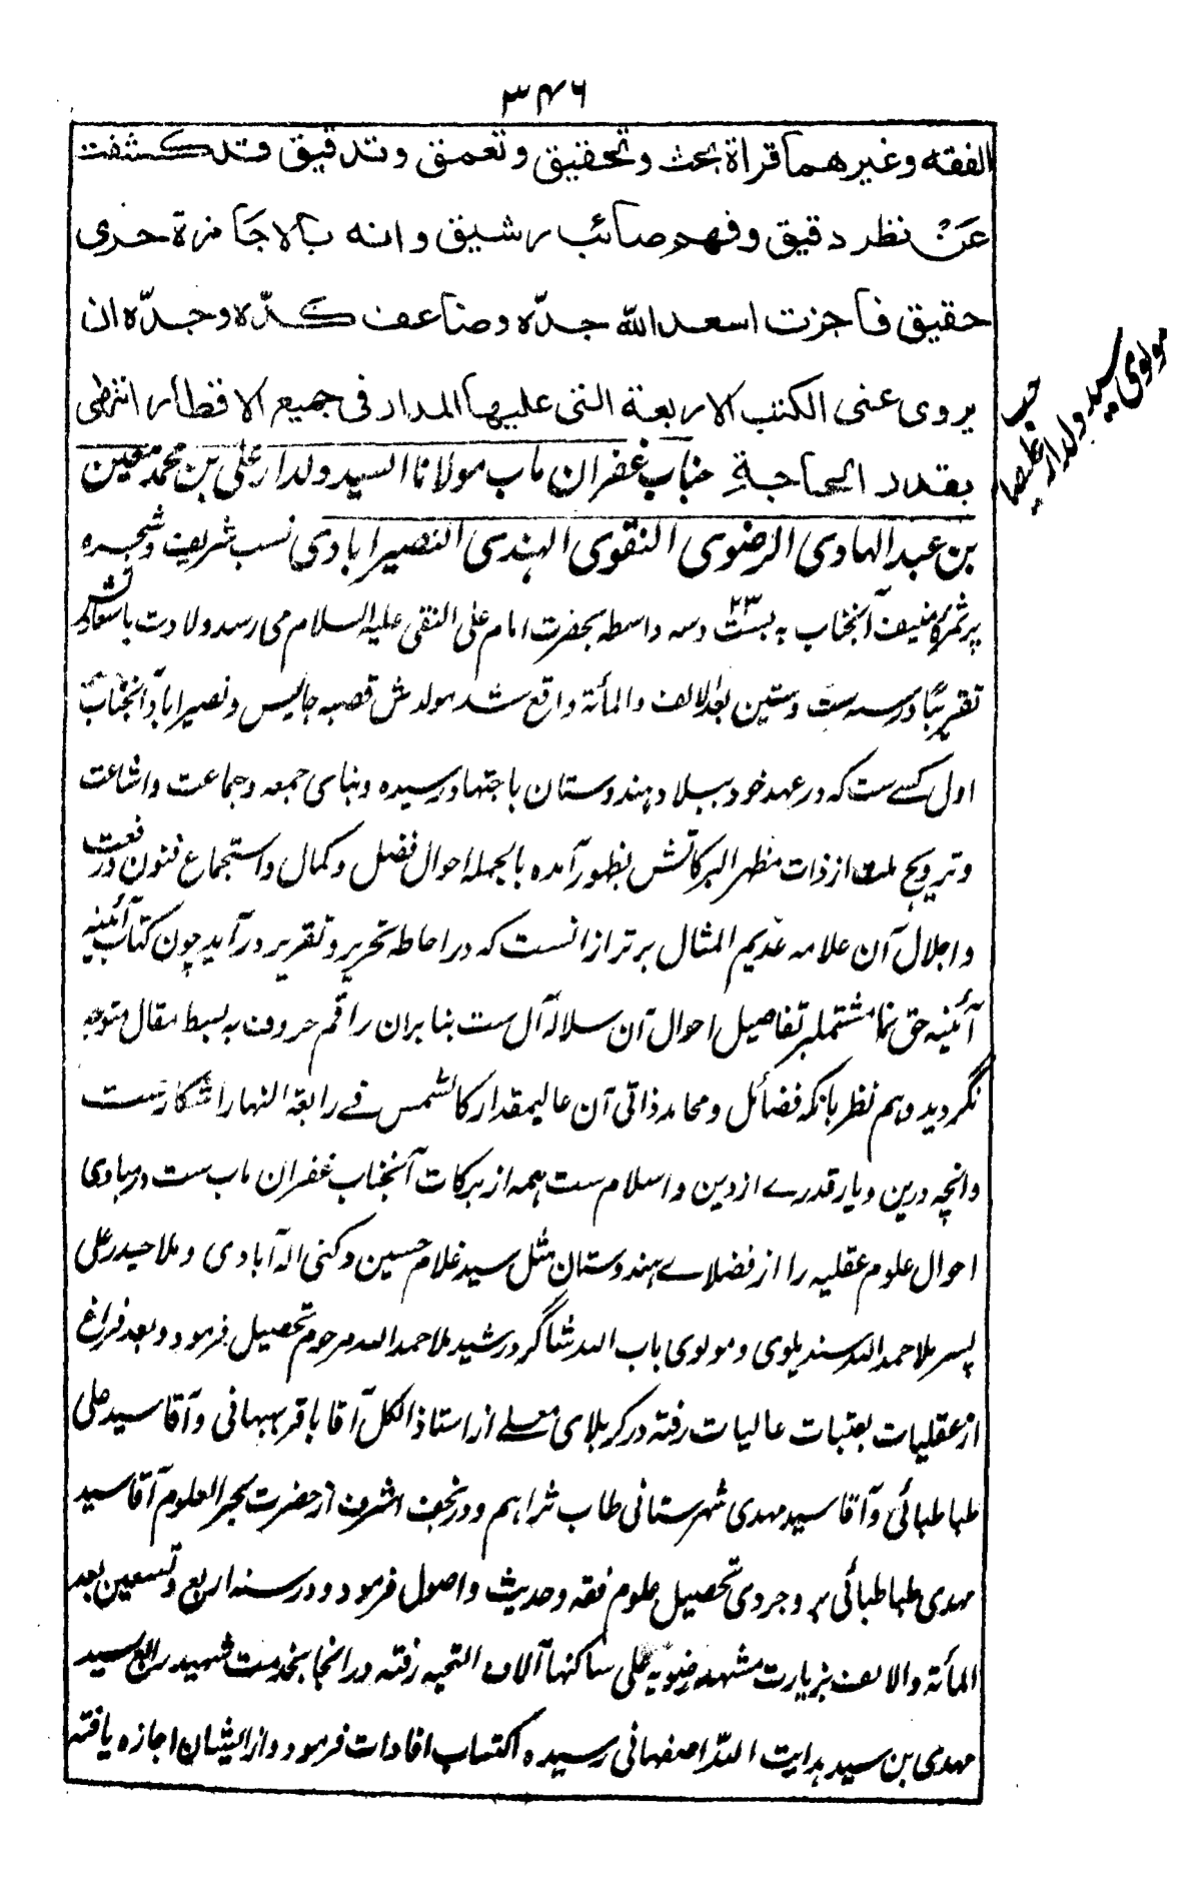 ۳۴۶
الفقه وغيرهما قراة بحث وتحقيق وتعمق وتدقيق قد كشفت
عن نظر دقيق وفهم صائب رشيق وانه بالاجازة حرى
حقيق فاجزت اسعد الله جدّه وضاعف كدّه وجدّه ان
يروى عنى الكتب الاربعة التى عليها المدار فى جميع الاقطار انتهى
بقدر الحاجة جناب غفران مآب مولانا السيد ولدار على بن محمد معين
بن عبد الهادى الرضوى النقوى الهندى النصيرابادى نسب شريف و شجره
پر ثمرهٔ منيف آنجناب به بست وسه ۲۳ واسطه بحضرت امام على النقى عليه السلام مى رسد ولادت باسعادتش
تقريبًا در سنه ست وستين بعد الالف والمأة واقع شد مولدش قصبه جايس و نصيرآباد آنجناب
اول كسے ست كه در عهد خود ببلاد هندوستان باجتهاد رسيده وبناى جمعه وجماعت واشاعت
وترويج ملت از ذات مظهر البركاتش بظهور آمده بالجمله احوال فضل و كمال واستجماع فنون ورفعت
واجلال آن علامه عديم المثال برتر ازانست كه در احاطه تحرير وتقرير در آيد چون كتاب آئينه
آئينه حق نما مشتملبر تفاصيل احوال آن سلالهٔ آل ست بنابران راقم حروف به بسط مقال متوجه
نگرديد وهم نظر بانكه فضائل ومحامد ذاتى آن عاليمقدار كالشمس فے رابعة النهار اشكارست
وانچه درين ديار قدرے از دين واسلام ست همه از بركات آنجناب غفران مآب ست در مبادى
احوال علوم عقليه را از فضلاے هندوستان مثل سيد غلام حسين دكنى اله آبادى و ملا حيدر على
پسر ملا حمد الله سنديلوى و مولوى باب الله شاگرد رشيد ملا حمد الله مرحوم تحصيل فرمود و بعد فراغ
از عقليات بعتبات عاليات رفته در كربلاى معلے از استاذ الكل آقا باقر بهبهانى و آقا سيد على
طباطبائى و آقا سيد مهدى شهرستانى طاب ثراهم و در نجف اشرف از حضرت بحر العلوم آقا سيد
مهدى طباطبائى بروجردى تحصيل علوم فقه وحديث واصول فرمود و در سنه اربع وتسعين بعد
المأة والالف بزيارت مشهد رضويه على ساكنها آلاف التحيه رفته در انجا بخدمت شهيد رابع سيد
مهدى بن سيد هدايت الله اصفهانى رسيده اكتساب افادات فرمود و از ايشان اجازه يافته
مولوى سيد ولدار عليصاحب